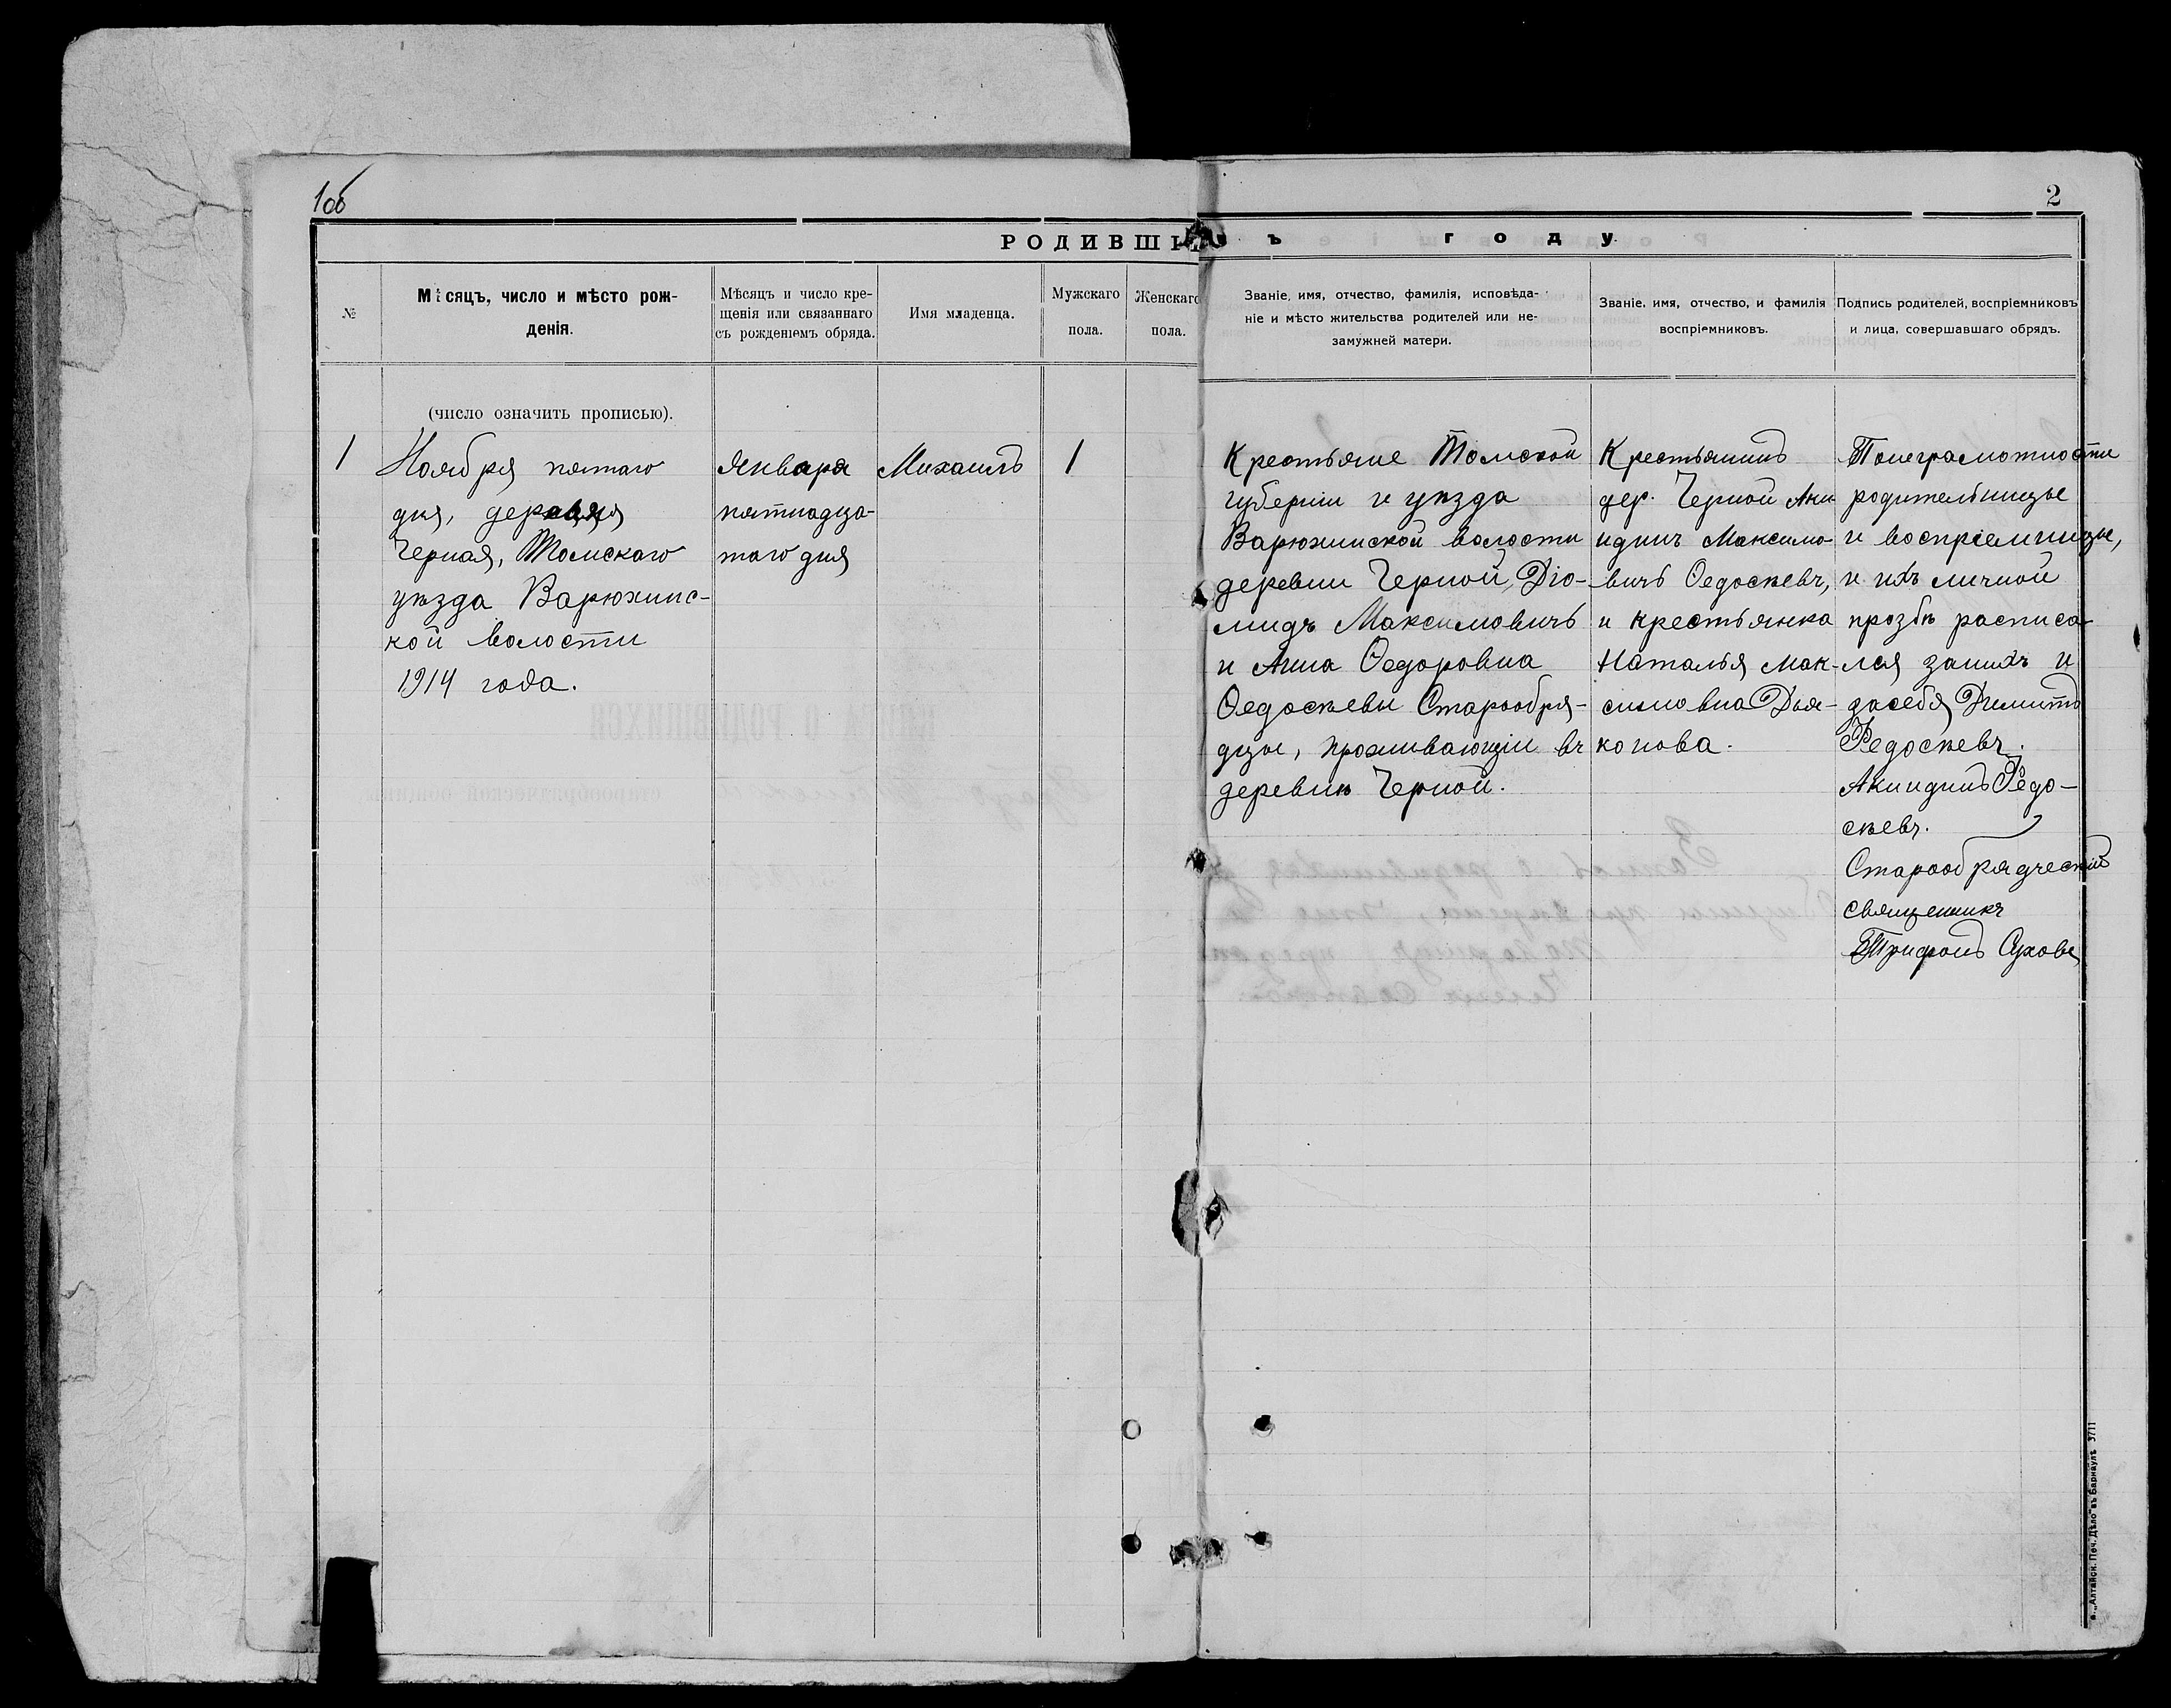 1об
2
РОДИВШІ
ъ году
№
Мѣсяцъ, число и мѣсто рож-
денія.
Мѣсяцъ и число кре-
щенія или связаннаго
съ рожденіемъ обряда.
Имя младенца.
Мужскаго
пола.
Женскаго
пола.
Званіе, имя, отчество, фамилія, исповѣда-
ніе и мѣсто жительства родителей или не-
замужней матери.
Званіе, имя, отчество, и фамилія
воспріемниковъ.
Подпись родителей, воспріемниковъ
и лица, совершавшаго обрядъ.
(число означить прописью).
1
Ноября пятаго
дня, деревня
Черная, Томскаго
уѣзда Варюхинс-
кой волости
1914 года.
Января
пятнадца-
таго дня
Михаилъ
1
Крестьяне Томской
губерніи и уѣзда
Варюхинской волости
деревни Черной, Діо-
мидъ Максимовичъ
и Анна Ѳедоровна
Ѳедосѣевы Старообря-
дцы, проживающіи въ
деревнѣ Черной.
Крестьянинъ
дер. Черной Аки-
ндинъ Максимо-
вичъ Ѳедосѣевъ,
и крестьянка
Наталья Мак-
симовна Дья-
конова.
Понеграмотности
родительницы
и воспріемницы,
и ихъ личной
прозбѣ расписа-
лся занихъ и
засебя Диомитъ
Федосѣевъ.
Акиндинъ Федо-
сѣевъ.
Старообрядческій
священникъ
Трифонъ Суховъ
"Алтайск. Печ. Дѣло" въ Барнаулѣ 3711